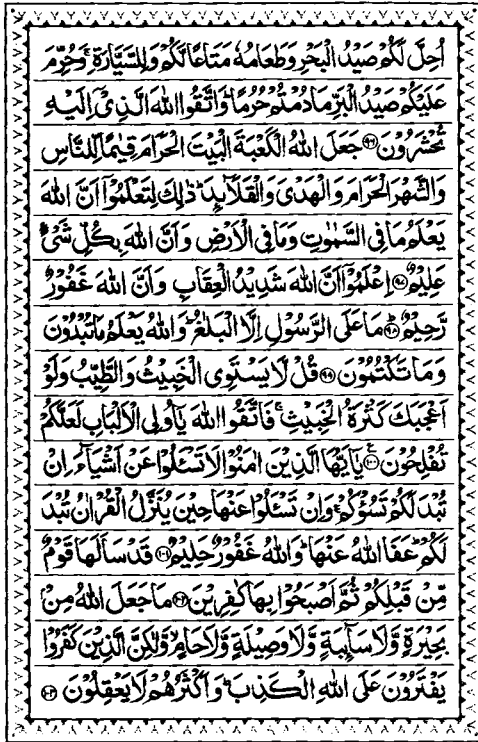 اُحِلَّ لَكُمْ صَيْدُ الْبَحْرِ وَطَعَامُهٗ مَتَاعًا لَّكُمْ وَلِلسَّيَّارَةِ ۚ وَحُرِّمَ
عَلَيْكُمْ صَيْدُ الْبَرِّ مَا دُمْتُمْ حُرُمًا ؕ وَاتَّقُوا اللّٰهَ الَّذِىْۤ اِلَيْهِ
تُحْشَرُوْنَ ﴿۹۶﴾ جَعَلَ اللّٰهُ الْكَعْبَةَ الْبَيْتَ الْحَرَامَ قِيٰمًا لِّلنَّاسِ
وَالشَّهْرَ الْحَرَامَ وَالْهَدْىَ وَالْقَلَآٮِٕدَ ؕ ذٰلِكَ لِتَعْلَمُوْۤا اَنَّ اللّٰهَ
يَعْلَمُ مَا فِى السَّمٰوٰتِ وَمَا فِى الْاَرْضِ وَاَنَّ اللّٰهَ بِكُلِّ شَىْءٍ
عَلِيْمٌ ﴿۹۷﴾ اِعْلَمُوْۤا اَنَّ اللّٰهَ شَدِيْدُ الْعِقَابِ وَاَنَّ اللّٰهَ غَفُوْرٌ
رَّحِيْمٌ ﴿۹۸﴾ مَا عَلَى الرَّسُوْلِ اِلَّا الْبَلٰغُ ؕ وَاللّٰهُ يَعْلَمُ مَا تُبْدُوْنَ
وَمَا تَكْتُمُوْنَ ﴿۹۹﴾ قُلْ لَّا يَسْتَوِى الْخَبِيْثُ وَالطَّيِّبُ وَلَوْ
اَعْجَبَكَ كَثْرَةُ الْخَبِيْثِ ۚ فَاتَّقُوا اللّٰهَ يٰۤاُولِى الْاَلْبَابِ لَعَلَّكُمْ
تُفْلِحُوْنَ ﴿۱۰۰﴾ يٰۤاَيُّهَا الَّذِيْنَ اٰمَنُوْا لَا تَسْـَٔلُوْا عَنْ اَشْيَآءَ اِنْ
تُبْدَ لَكُمْ تَسُؤْكُمْ ۚ وَاِنْ تَسْـَٔلُوْا عَنْهَا حِيْنَ يُنَزَّلُ الْقُرْاٰنُ تُبْدَ
لَكُمْ ؕ عَفَا اللّٰهُ عَنْهَا ؕ وَاللّٰهُ غَفُوْرٌ حَلِيْمٌ ﴿۱۰۱﴾ قَدْ سَاَلَهَا قَوْمٌ
مِّنْ قَبْلِكُمْ ثُمَّ اَصْبَحُوْا بِهَا كٰفِرِيْنَ ﴿۱۰۲﴾ مَا جَعَلَ اللّٰهُ مِنْۢ
بَحِيْرَةٍ وَّلَا سَآٮِٕبَةٍ وَّلَا وَصِيْلَةٍ وَّلَا حَامٍ ۙ وَّلٰكِنَّ الَّذِيْنَ كَفَرُوْا
يَفْتَرُوْنَ عَلَى اللّٰهِ الْكَذِبَ ؕ وَاَكْثَرُهُمْ لَا يَعْقِلُوْنَ ﴿۱۰۳﴾